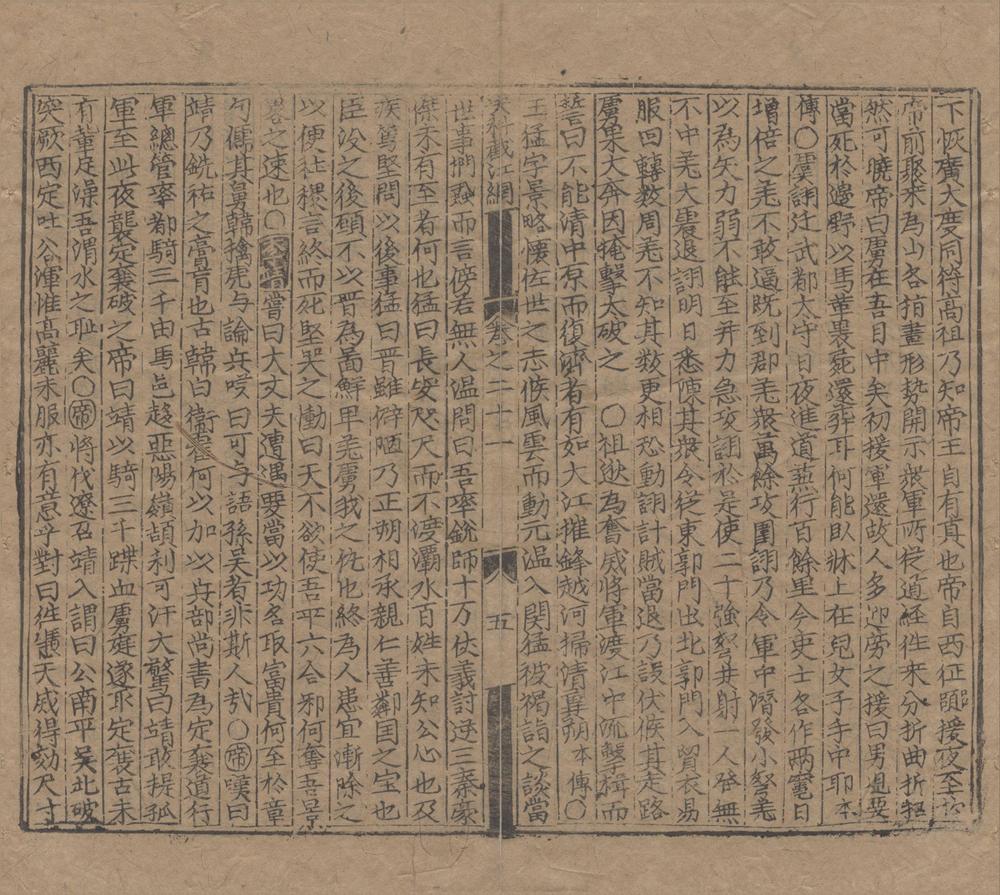 下恢廓大度同符高祖乃知帝王自有真也帝自西征嚻援夜至
帝前聚米為山谷指畫形勢開示衆軍所從道經徃來分折曲折昭
然可曉帝曰虜在吾目中矣初援軍還故人多迎勞之援曰男兒要
當死於邊野以馬革裹屍還葬耳何能臥牀上在兒女子手中耶本
傳○虞詡迁武都太守日夜進道兼行百餘里令吏士各作兩竈日
增倍之羌不敢逼旣到郡羌衆萬餘攻圍詡乃令軍中潛發小弩羌
以為矢力弱不能至并力急攻詡於是使二十強弩共射一人發無
不中羌大震退詡明日悉陳其衆令從東郭門出北郭門入貿衣易
服回轉數周羌不知其数更相恐動詡計賊當退乃設伏候其走路
虜果大奔因掩擊大破之　○祖逖為奮威將軍渡江中流擊楫而
誓曰不能清中原而復濟者有如大江摧鋒越河掃清 本傳○
王猛字景略懷佐世之志候風雲而動元温入関猛被褐詣之談當
截江網 卷之二十一 五
世事捫虱而言傍若無人温問曰吾率銳師十万仗義討逆三秦豪
傑未有至者何也猛曰長安咫尺而不渡灞水百姓未知公心也及
疾篤堅問以後事猛曰晋雖僻陋乃正朔相承親仁善鄰国之宝也
臣沒之後願不以晋為啚鮮卑羌虜我之仇也終為人患宜漸除之
以便社稷言終而死堅哭之慟曰天不欲使吾平六合邪何奪吾景
畧之速也○李靖嘗曰大丈夫遭遇要當以功名取富貴何至於章
句儒其舅韓擒虎与論兵嘆曰可与語孫吴者非斯人㢤○帝嘆曰
靖乃銑祐之膏肓也古韓白衛霍何以加以兵部尚書為定襄道行
軍總管率郡騎三千由馬邑趍惡陽嶺頡利可汗大驚曰靖敢提孤
軍至此夜襲定襄破之帝曰靖以騎三千蹀血虜庭遂取定襄古未
有輩足澡吾渭水之耻矣○帝將伐遼召靖入謂曰公南平吴北破
突厥西定吐谷渾惟高麗未服亦有意乎對曰徃馮天威得効尺寸